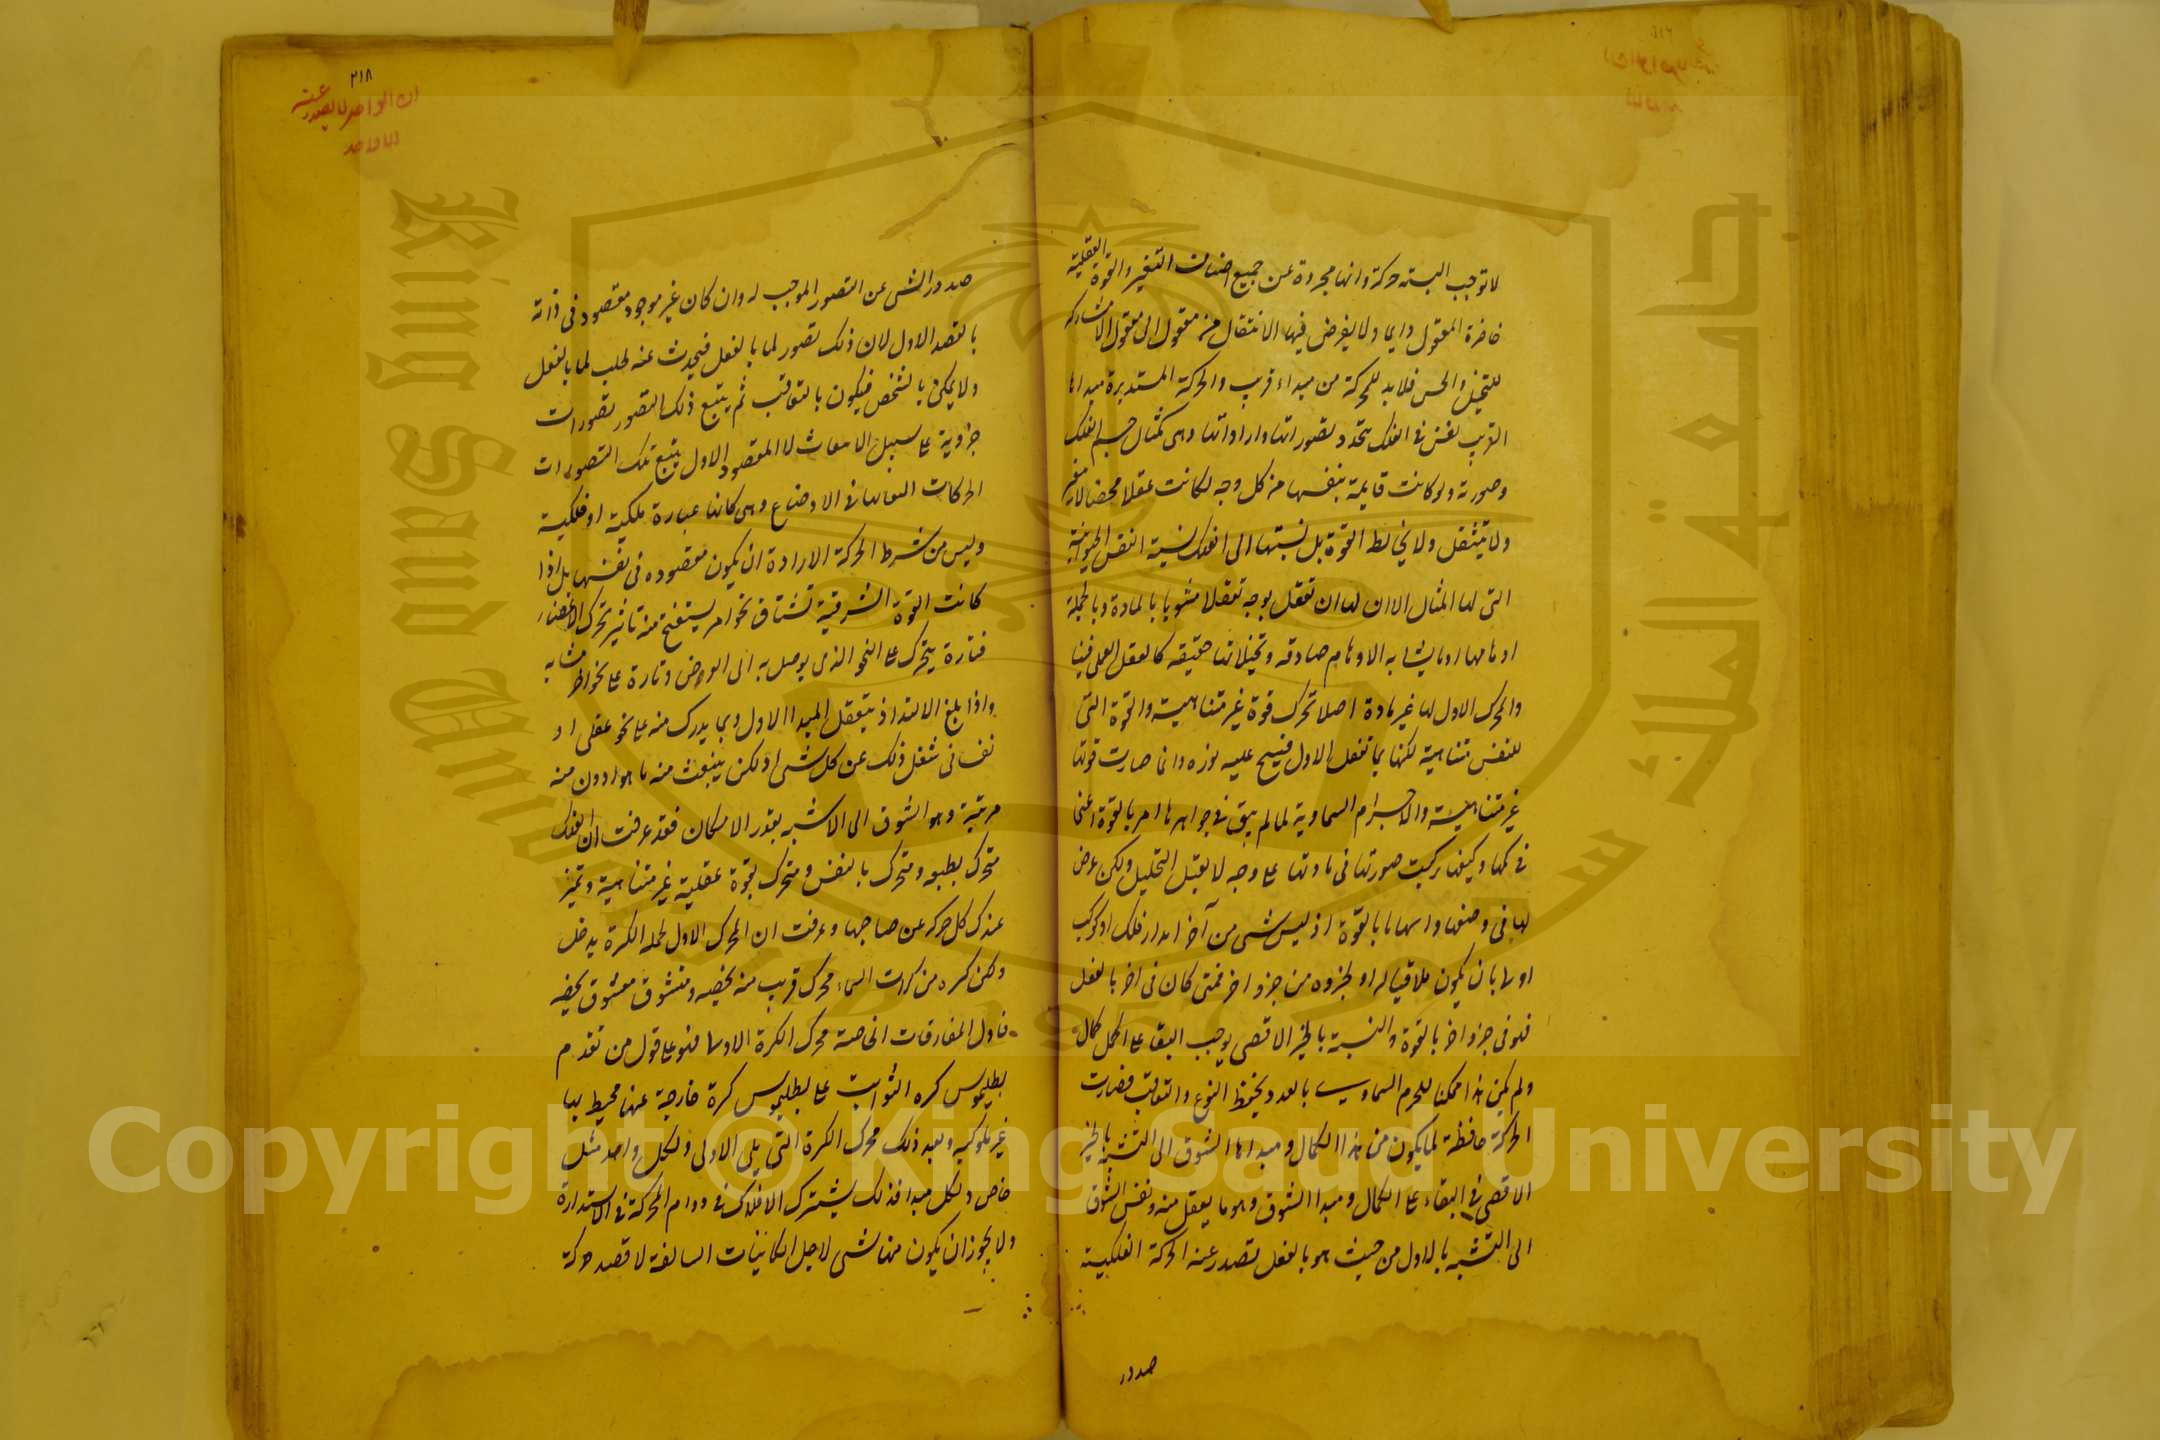 لا توجب البته حركة وانها مجردة عن جميع اصناف التغير والقوة العقلية
حاضرة المعقول دايما ولا يفرض فيها الانتقال من معقول الى معقول الا مشاركه
للتخيل والحس فلا بد للحركة من مبداء قريب والحركة المستديرة مبداها
القريب نفس في الفلك يتجدد تصوراتها واراداتها وهى كمثال جسم الفلك
وصورته ولو كانت قايمة بنفسها من كل وجه لكانت عقلا محضا لا يتغير
ولا ينتقل ولا يخالط القوة بل نسبتها الى الفلك نسبة النفس الحيوانية
التى لها المثال الا ان لها ان تعقل بوجه تعقلا مشوبا بالمادة وبالجملة
اوهامها او ما يشابه الاوهام صادقه وتخيلاتها حقيقه كالعقل العملى فينا
والمحرك الاول لها غير مادة اصلا تحرك قوة غير متناهية والقوة التى
للنفس متناهية لكنها بما تعقل الاول فيسح عليه نوره دايما صارت قوتها
غير متناهية والاجرام السماوية لما لم يبق فى جواهرها امر بالقوة اعنى
فى كمها وكيفها ركبت صورتها فى مادتها على وجه لا يقبل التحليل ولكن عرض
لها فى وضعها واينها ما بالقوة اذ ليس شى من آخر امدار فلك او كوكب
اولى بان يكون ملاقيا له او لجزوه من جزو اخر فمتى كان فى اخر بالفعل
فهو فى جزو اخر بالقوة والنسبة بالخير الاقصى يوجب البقا على اكمل كمال
ولم يكن هذا ممكنا للجرم السماوى بالعدد فحفظ النوع والتعاقب فصارت
الحركة حافظة لما يكون من هذا الكمال ومبداها الشوق الى التشبه بالخير
الاقصى فى البقاء على الكمال ومبدا الشوق وهو ما يعقل منه ونفس الشوق
الى التشبه بالاول من حيث هو بالفعل تصدر عنه الحركة الفلكية
صدور
٢١٨
ان الواحد لا يصدر عنه
الا واحد
صدور الشى عن التصور الموجب له وان كان غير موجود مقصود فى ذاته
بالقصد الاول لان ذلك تصور لما بالفعل فيحدث عنه طلب لما بالفعل
ولا يمكن بالشخص فيكون بالتعاقب ثم يتبع ذلك التصور تصورات
جزوية على سبيل الانبعاث لا المقصود الاول يتبع تلك التصورات
الحركات المنتقل بها فى الاوضاع وهى كانها عبادة ملكية او فلكية
وليس من شرط الحركة الارادة ان يكون مقصوده فى نفسها بل اذا
كانت القوة الشوقية تشتاق نحو امر يستفتح منه تاثير تحرك الاعضاء
فتارة يتحرك على النحو الذى يوصل به الى الغرض وتارة على نحو اخر مشابه
واذا بلغ الالتذاذ بتعقل المبدا الاول وبما يدرك منه على نحو عقلى او
نفسانى شغل ذلك عن كل شى اذ لكن ينبعث منه ما هو ادون منه
مرتبة وهو الشوق الى الاشبه بقدر الامكان فقد عرفت ان الفلك
متحرك بطبعه ومتحرك بالنفس ومتحرك بقوة عقلية غير متناهية وتميز
عندك كل حركه عن صاحبها وعرفت ان المحرك الاول لجملة الكرة
ولكل كره من كرات السماء محرك قريب منه يخصه ومتشوق معشوق يخصه
فاول المفارقات الخاصة محرك الكرة الاولى فهو على قول من تقدم
بطليموس كره الثوابت على بطليموس كرة خارجة عنها محيط بها
غير مكوكبه وبعد ذلك محرك الكرة التى يلى الاولى ولكل واحد مثل
خاص ولكل مبدا فذلك يشترك الافلاك فى دوام الحركة فى الاستدارة
ولا يجوز ان يكون منها شى لاجل الكاينات السافلة لا قصد حركة